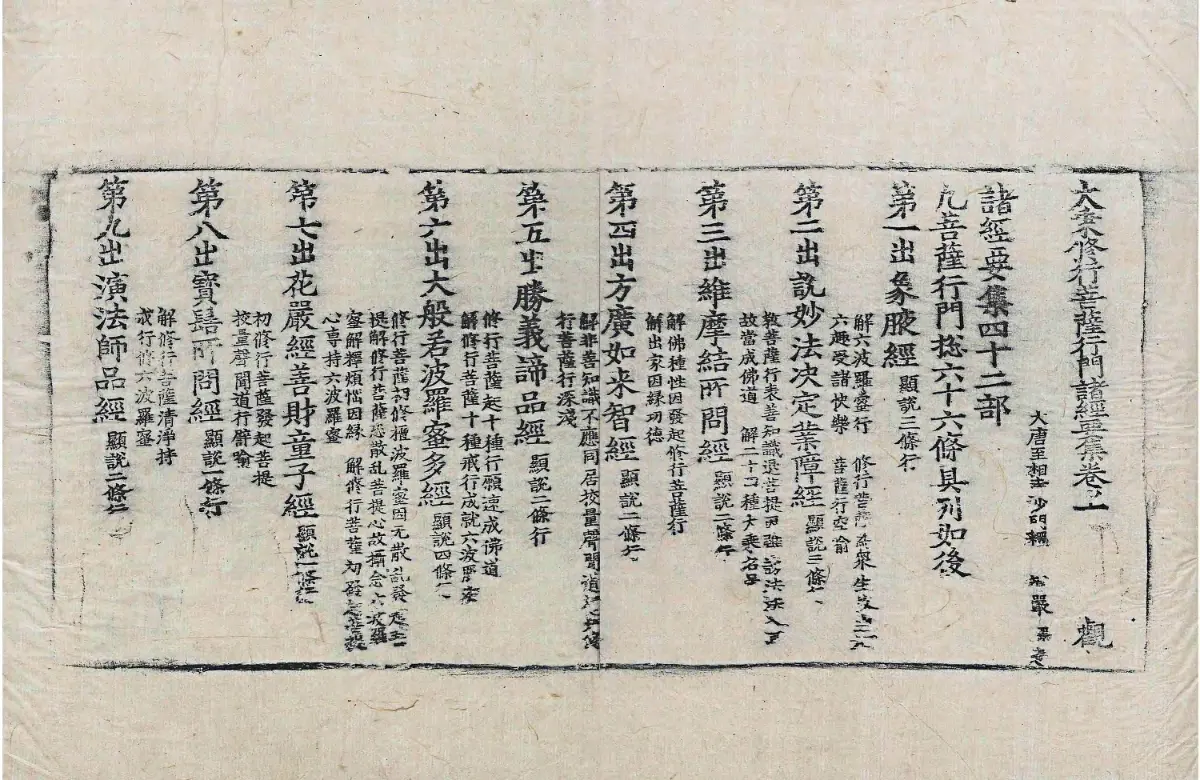 大乘修行菩薩行門諸經要集卷上 觀
大唐至相寺沙門釋 智嚴
諸經要集四十二部
凡菩薩行門揔六十六條具列如後
第一出象腋經 顯說三條行
解六波羅蜜行 修行菩薩 衆生
六趣受諸快樂 菩薩行空喻
第二出說妙法决定業障經 顯說三條
教菩薩行表善知識退菩提 謗法
故當成佛道 解二十四種大乘名号
第三出維摩結所問經 顯說二條行
解佛種性因發起修行菩薩行
解出家因緣功德
第四出方廣如来智經 顯說二條行
解非善知識不應同居挍量聲聞道
行菩薩行深淺
第五出勝義諦品經 顯說二條行
修行菩薩起十種行願速成佛道
解修行菩薩十種戒行成就六波羅蜜
第六出大般若波羅蜜多經 顯說四條
修行菩薩初修檀波羅蜜因无散乱發
提解修行菩薩悉散乱菩提心故攝念六波羅
蜜解釋煩惱因緣 解修行菩薩初發起菩提
心專持六波羅蜜
第七出花嚴經善財童子經 顯說一條行
初修行菩薩發起菩提
挍量聲聞道行譬喻
第八出寶髻所問經 顯說一條行
解修行菩薩清淨持
戒行修六波羅蜜
第九出演法師品經 顯說二條行